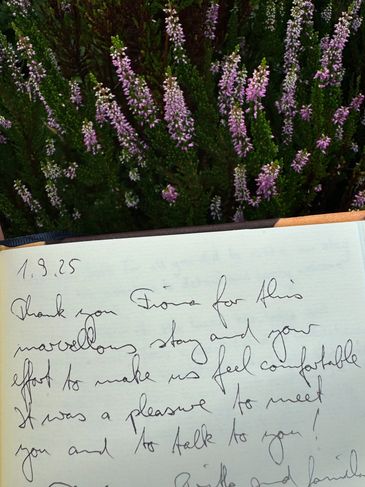 1.9.25
Thank you Fiona for this
marvellous stay and your
effort to make us feel comfortable
It was a pleasure to meet
you and to talk to you!
and famil